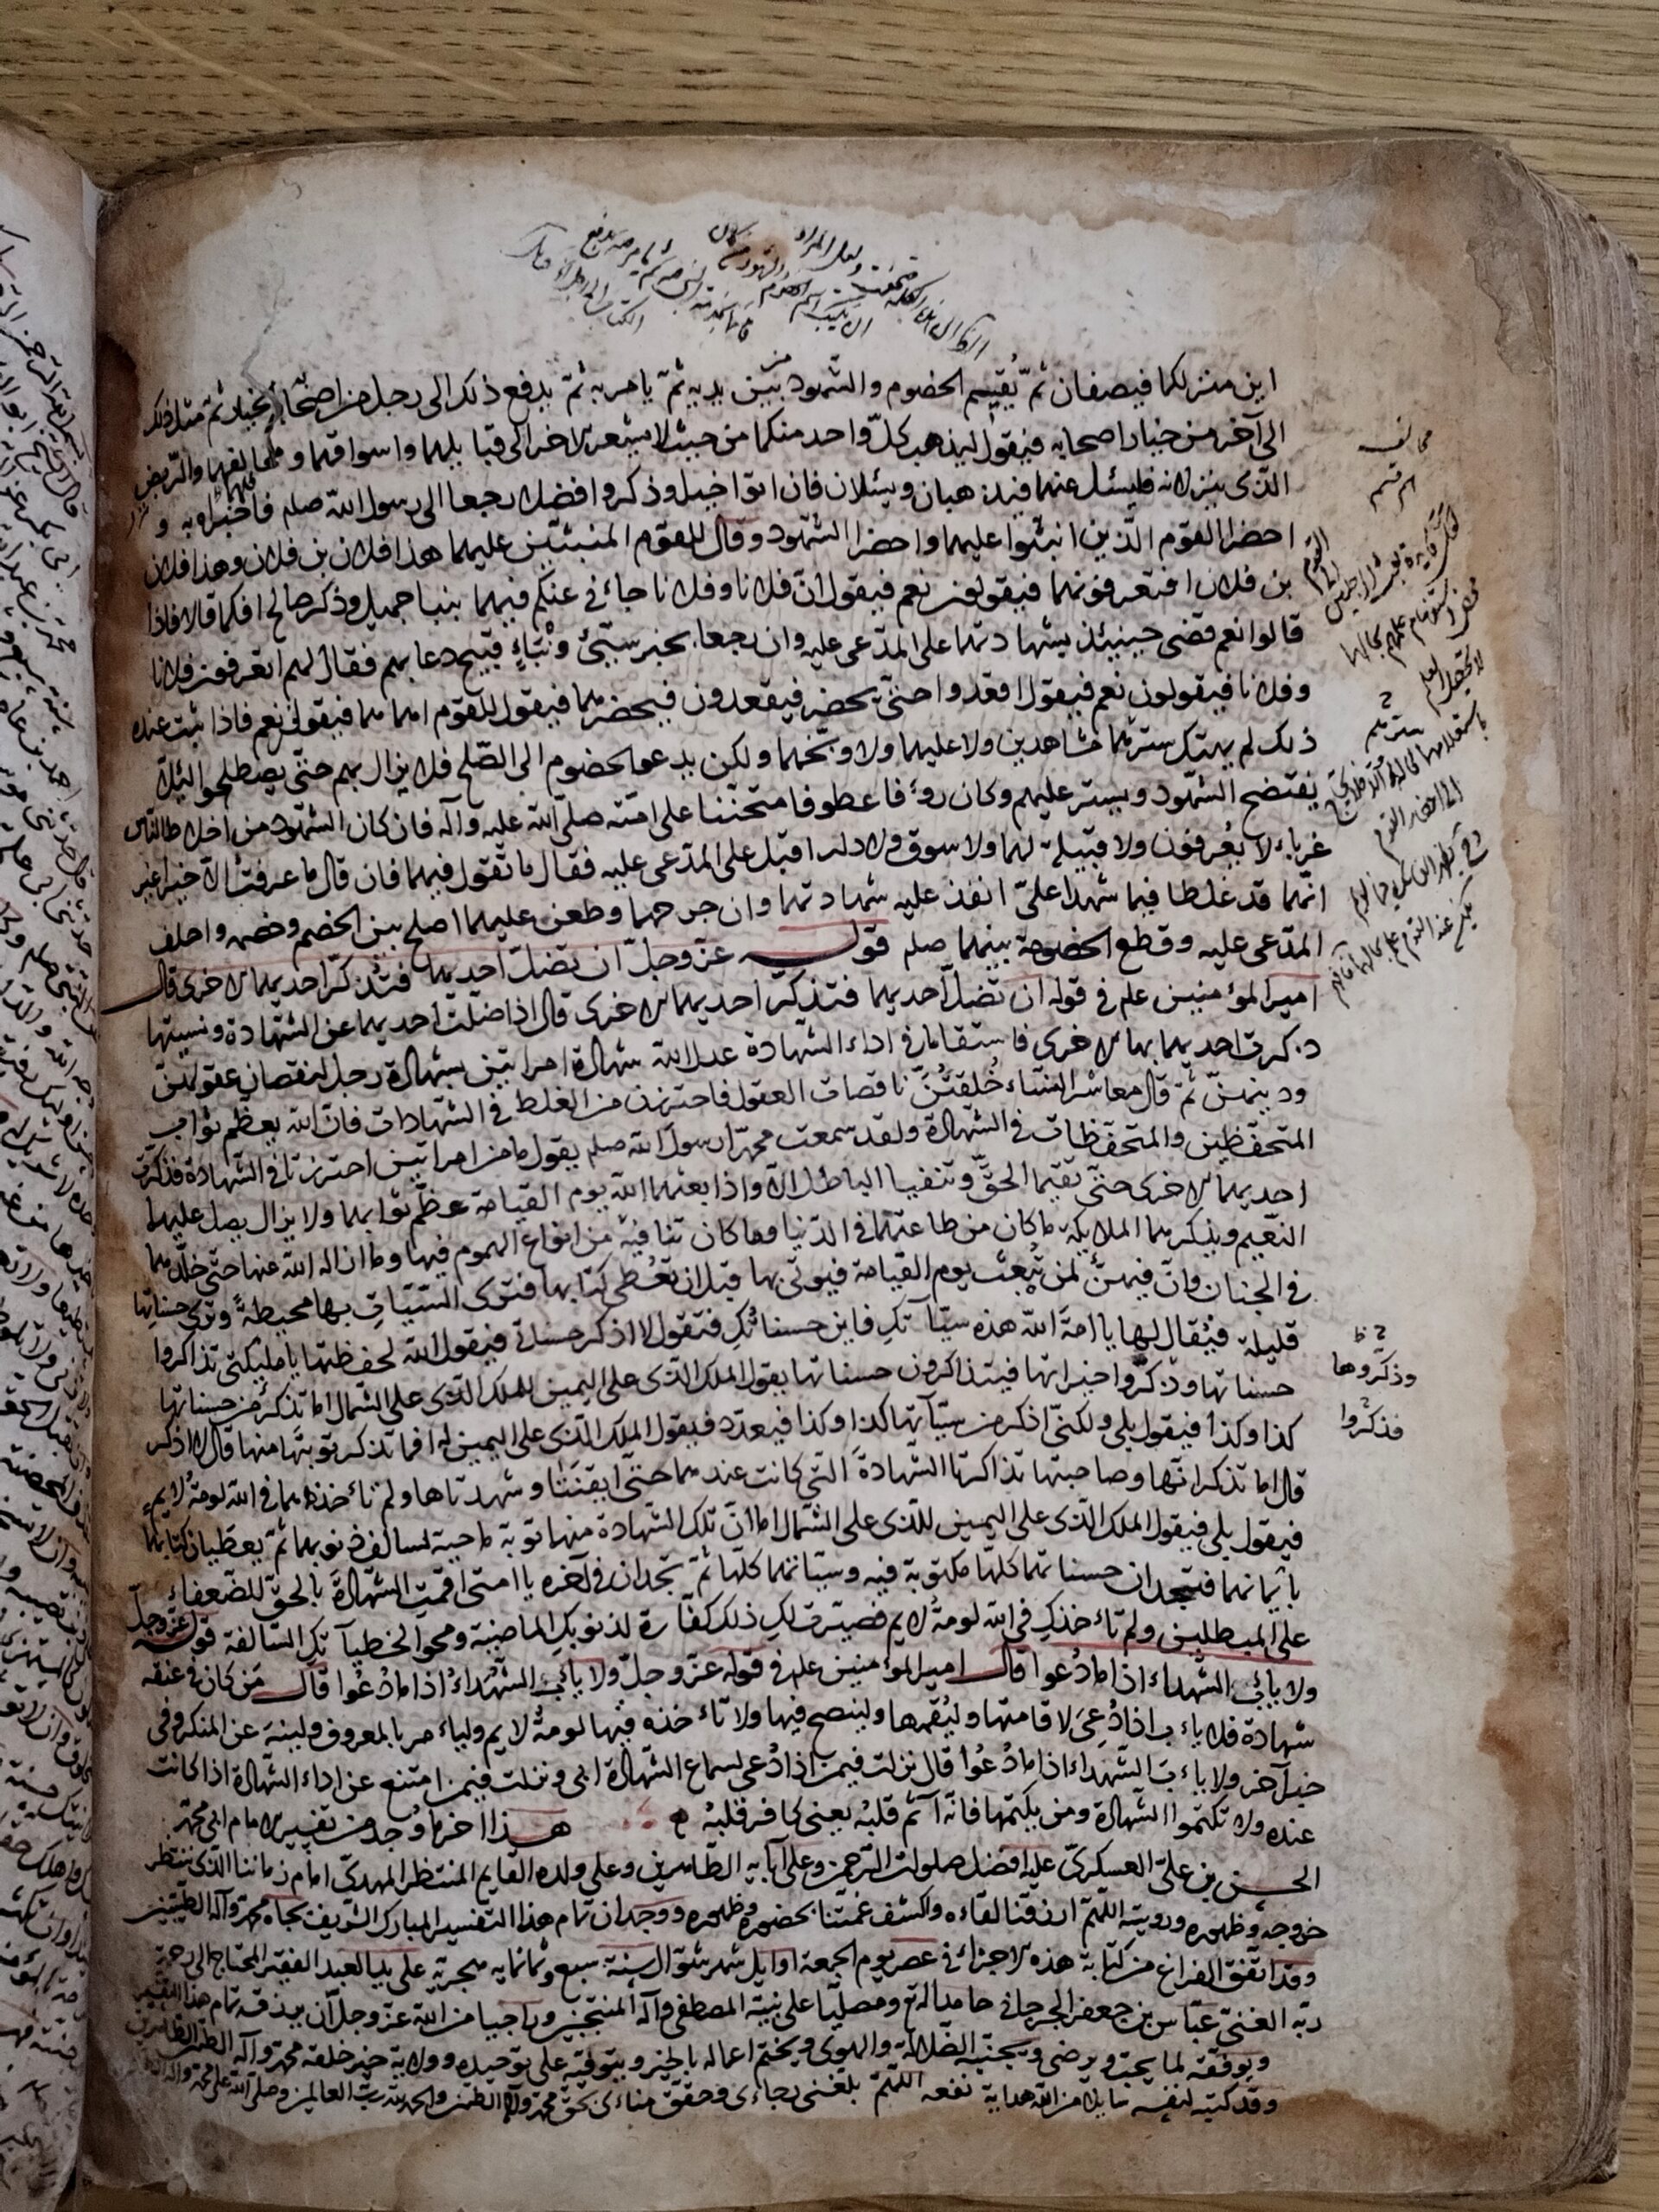 اين منزلكما فيصفان ثمّ يُقيم الخصوم والشهود بين يديه ثمّ يامر به ثمّ يدفع ذلك الى رجل من اصحابه الخيار ثمّ مثل ذلك
الى آخر من خيار اصحابه فيقول ليذهب كلّ واحد منكما من حيث لا يشعر الاخر الى قبايلهما واسواقهما ومحالهما والرّبض
الذى ينزلانه فليسئل عنهما فيذهبان ويسئلان فان اتوا خيل وذكروا افضلا رجعا الى رسول الله صلم فاخبراه به و
احضرا القوم الذين اثنوا عليهما واحضرا الشهود وقال للقوم المثنين عليهما هذا فلان بن فلان وهذا فلان
بن فلان افتعرفونهما فيقولون نعم فيقول انّ فلانا وفلانا جاءنى عنكم فيهما بنبا جميل وذكر صالح افكما قالا فاذا
قالوا نعم قضى حينئذ بشهادتهما على المدّعى عليه وان رجعا بخبر سيّئ ونبَاءٍ قبيح دعا بهم فقال لهم اتعرفون فلانا
وفلانا فيقولون نعم فيقول اقعدوا حتّى يحضر فيقعدون فيحضرهما فيقول للقوم اهما هما فيقولون نعم فاذا ثبت عنده
ذلك لم يهتك سترهما شاهدين ولا عليهما ولا وبّخهما ولكن يدعو الخصوم الى الصّلح فلا يزال بهم حتّى يصطلحوا لئلا
يفتضح الشّهود ويستر عليهم وكان رؤفا عطوفا متحنّنا على امّته صلّى الله عليه وآله فان كان الشّهود من اخلاط النّاس
غرباء لا يُعرفون ولا قبيلة لهما ولا سوق ولا دار اقبل على المدّعى عليه فقال ما تقول فيهما فان قال ما عرفت الّا خيرا غير
انّهما قد غلطا فيما شهدا علىّ انفذ عليه شهادتهما وان جرحهما وطعن عليهما اصلح بين الخصم وخصمه واحلف
المدّعى عليه وقطع الخصومة بينهما صلم قوله عزّ وجلّ ان تضلّ احديهما فتذكّر احديهما الاخرى قال
امير المؤمنين علم فى قوله ان تضلّ احديهما فتذكّر احديهما الاخرى قال اذا ضلّت احديهما عن الشّهادة ونسيتها
ذكرت احديهما بها الاخرى فاستقامتا فى اداء الشهادة عدل الله شهادة امراتين بشهادة رجل لنقصان عقولهنّ
ودينهنّ ثمّ قال معاشر النّساء خُلقتُنّ ناقصات العقول فاحترزن من الغلط فى الشّهادات فانّ الله يعظّم ثواب
المتحفّظين والمتحفّظات فى الشّهادة ولقد سمعت محمدا رسول الله صلم يقول ما من امراتين احترزتا فى الشّهادة فذكرت
احديهما الاخرى حتّى تقيما الحقّ وتنفيا الباطل الّا واذا بعثهما الله يوم القيامة عظّم ثوابهما ولا يزال يصل عليهما
النّعيم ويذكرهما الملايكة ما كان من طاعتهما فى الدّنيا وما كانتا فيه من انواع الهموم فيها وما ازاله الله عنها حتّى خلّدهما
فى الجنان وانّ فيهنّ لمن تُبعث يوم القيامة فيوتى بها قبل ان تعُطى كتابها فترى السّيّئاتِ بها محيطةً وترى حسناتِها
قليلة فيُقال لها يا امةَ الله هذه سيّآتكِ فاين حسناتكِ فتقول لا اذكر حسناتى فيقول الله لحفظتها يا مليكتى تذاكروا
حسناتها وذكّروا خيراتها فيتذاكرون حسناتها يقول الملك الذى على اليمين للملك الذى على الشّمال اما تذكر من حسناتها
كذا وكذا فيقول بلى ولكنّى اذكر من سيّآتها كذا وكذا فيعدّد فيقول الملك الذى على اليمين له افما تذكر توبتها منها قال لا اذكر
قال اما تذكر انّها وصاحبتها تذاكرتا الشّهادةَ التى كانت عندهما حتّى ايقنتا وشهدتاها ولم تاخذهما فى الله لومةُ لايمٍ
فيقول بلى فيقول الملك الذى على اليمين للذى على الشّمال اما انّ تلك الشّهادة منهما توبة ماحية لسالف ذنوبهما ثمّ يعطيان كتابهما
بايمانهما فتجدان حسناتهما كلّها مكتوبة فيه وسيّآتهما كلّها ثمّ تجدان فى آخره يا امتى اقمتِ الشّهادةَ بالحقّ للضّعفاء
على المبطلين ولم تاءخذكِ فى الله لومةُ لايم فصيّرت لكِ ذلك كفّارة لذنوبكِ الماضية ومحوا لخطيآتكِ السّالفة قوله عزّ وجلّ
ولا يابى الشّهداء اذا ما دُعوا قال امير المؤمنين علم فى قوله عزّ وجلّ ولا يابى الشّهداءُ اذا ما دُعُوا قال من كان فى عنقه
شهادة فلا ياءب اذا دُعِىَ لاقامتها وليُقمها ولينصح فيها ولا تاءخذه فيها لومةُ لايم ولياءمر بالمعروف ولينه عن المنكر وفى
خبر آخر ولا ياءبَ الشّهداء اذا ما دُعُوا قال نزلت فيمن اذا دُعى لسماع الشّهادة ابى ونزلت فيمن امتنع عن اداء الشّهادة اذا كانت
عنده ولا تكتموا الشّهادة ومن يكتمها فانّه آثم قلبُه يعنى كافر قلبُه هذا آخر ما وُجد من تفسير الامام ابى محمّد
الحسن بن علىّ العسكرىّ عليه افضل صلوات الرّحمن وعلى آبايه الطّاهرين وعلى ولده القايم المنتظر المهدىّ امام زماننا الذى ننتظر
خروجه وظهوره ورويته اللّهمّ ارزقنا لقاءه واكشف غمّتنا بحضوره وظهوره ووجدان تمام هذا التفسير المبارك الشّريف بجاه محمّد وآله الطيّبين
وقد اتّفق الفراغ من كتابة هذه الاجزاء فى عصر يوم الجمعة اوايل شهر شوّال سنة سبع وثمانمايه هجريّة على يد العبد الفقير المحتاج الى رحمة
ربّه الغنىّ عبّاس بن جعفر الجرجانى حامدا لله ومصلّيا على نبيّه المصطفى وآله المنتجبين وراجيا من الله عزّ وجلّ ان يرزقه تمام هذا التفسير
ويوفّقه لما يحبّ ويرضى ويجنّبه الضّلالة والهوى ويختم اعماله بالخير ويتوفّيه على توحيده وولاية خير خلقه محمّد وآله الطيّبين الطّاهرين
وقد كتبه لنفسه سايلا من الله هداية نفعه اللّهمّ بلّغنى رجاءى وحقّق مناءى بحقّ محمّد وآله الطيّبين والحمد لله ربّ العالمين وصلّى الله على محمّد وآله
وذكّروها
فذكّروا